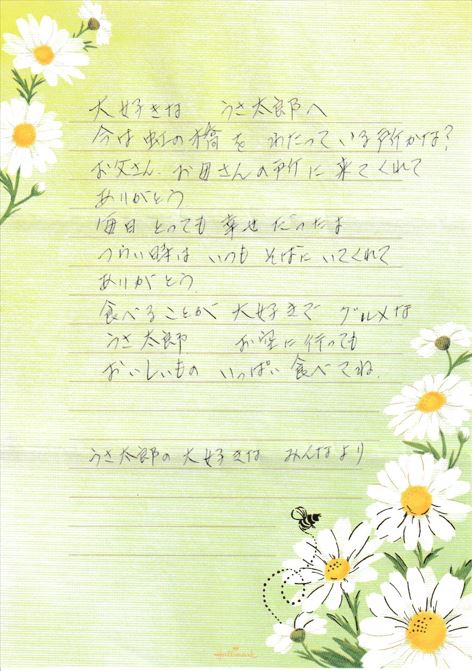 大好きな うさ太郎へ
今は虹の橋を わたっている所かな?
お父さん、お母さんの所に来てくれて
ありがとう
毎日 とっても 幸せだったよ
つらい時は いつも そばに いてくれて
ありがとう
食べることが 大好きで グルメな
うさ太郎 お空に行っても
おいしいもの いっぱい 食べてね。
うさ太郎の大好きな みんなより
Hallmark